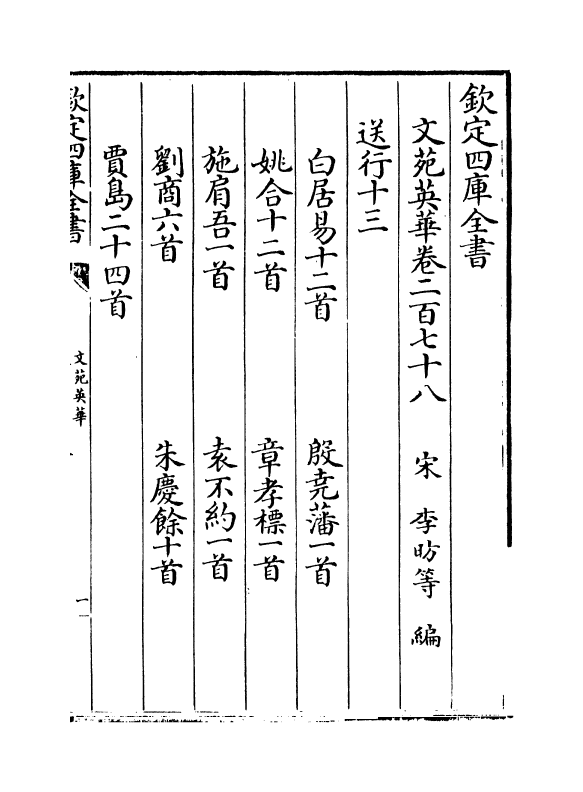 欽定四庫全書
文苑英華卷二百七十八 宋 李昉等 編
送行十三
白居易十二首 殷堯藩一首
姚合十二首 章孝標一首
施肩吾一首 袁不約一首
劉商六首 朱慶餘十首
賈島二十四首
欽定四庫全書
文苑英華
一